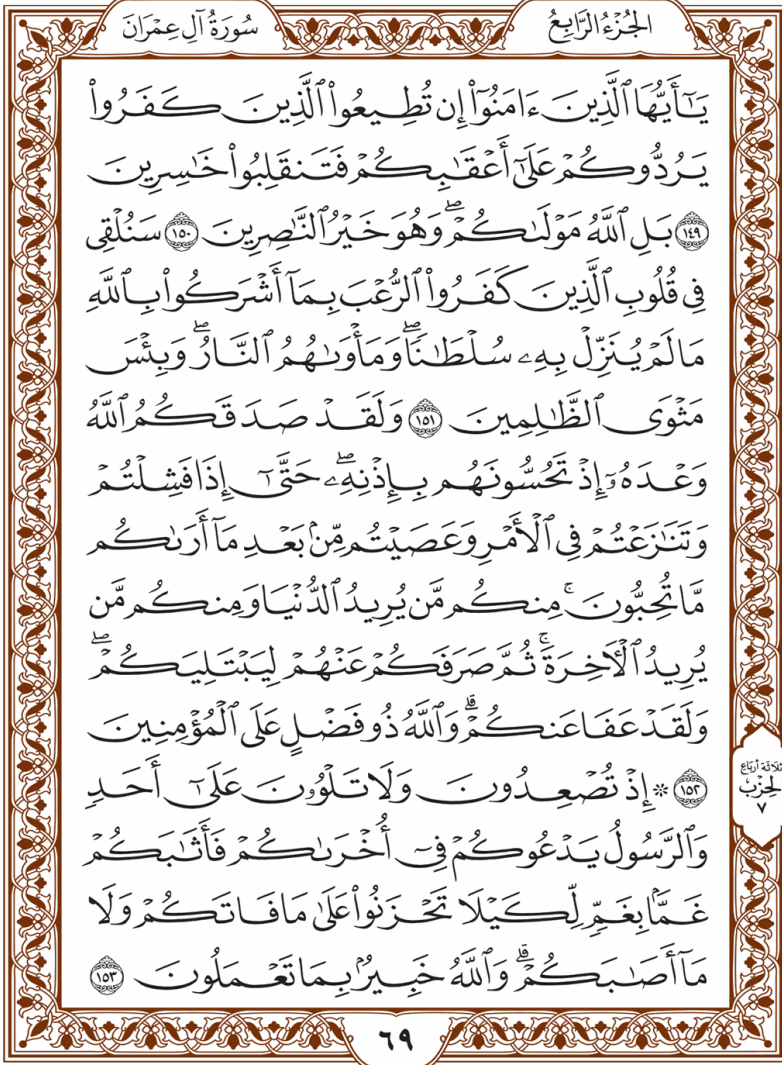 الجُزْءُ الرَّابِعُ
سُورَةُ آلِ عِمْرَانَ
يَـٰٓأَيُّهَا ٱلَّذِينَ ءَامَنُوٓاْ إِن تُطِيعُواْ ٱلَّذِينَ كَفَرُواْ
يَرُدُّوكُمْ عَلَىٰٓ أَعْقَـٰبِكُمْ فَتَنقَلِبُواْ خَـٰسِرِينَ
١٤٩ بَلِ ٱللَّهُ مَوْلَىٰكُمْۖ وَهُوَ خَيْرُ ٱلنَّـٰصِرِينَ ١٥٠ سَنُلْقِى
فِى قُلُوبِ ٱلَّذِينَ كَفَرُواْ ٱلرُّعْبَ بِمَآ أَشْرَكُواْ بِٱللَّهِ
مَا لَمْ يُنَزِّلْ بِهِۦ سُلْطَـٰنًاۖ وَمَأْوَىٰهُمُ ٱلنَّارُۖ وَبِئْسَ
مَثْوَى ٱلظَّـٰلِمِينَ ١٥١ وَلَقَدْ صَدَقَكُمُ ٱللَّهُ
وَعْدَهُۥٓ إِذْ تَحُسُّونَهُم بِإِذْنِهِۦۖ حَتَّىٰٓ إِذَا فَشِلْتُمْ
وَتَنَـٰزَعْتُمْ فِى ٱلْأَمْرِ وَعَصَيْتُم مِّنۢ بَعْدِ مَآ أَرَىٰكُم
مَّا تُحِبُّونَۚ مِنكُم مَّن يُرِيدُ ٱلدُّنْيَا وَمِنكُم مَّن
يُرِيدُ ٱلْـَٔاخِرَةَۚ ثُمَّ صَرَفَكُمْ عَنْهُمْ لِيَبْتَلِيَكُمْۖ
وَلَقَدْ عَفَا عَنكُمْۗ وَٱللَّهُ ذُو فَضْلٍ عَلَى ٱلْمُؤْمِنِينَ
١٥٢ * إِذْ تُصْعِدُونَ وَلَا تَلْوُۥنَ عَلَىٰٓ أَحَدٍ
وَٱلرَّسُولُ يَدْعُوكُمْ فِىٓ أُخْرَىٰكُمْ فَأَثَـٰبَكُمْ
غَمَّۢا بِغَمٍّ لِّكَيْلَا تَحْزَنُواْ عَلَىٰ مَا فَاتَكُمْ وَلَا
مَآ أَصَـٰبَكُمْۗ وَٱللَّهُ خَبِيرُۢ بِمَا تَعْمَلُونَ ١٥٣
ثلاثة أرباع
الحزب
٧
٦٩